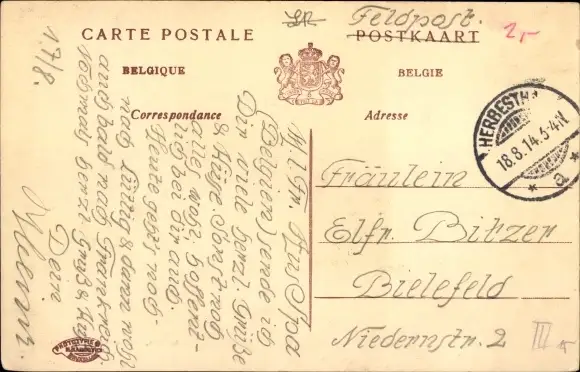 Feldpost.
2,-
CARTE POSTALE
POSTKAART
BELGIQUE
BELGIE
Correspondance
Adresse
HERBESTH
18.8.14.3-4N.
* a *
Fräulein
Elfr. Bitzer
Bielefeld
Niedernstr. 2
III
17/8.
M. l. Fr. Aus Spa
(Belgien) sende ich
Dir viele herzl. Grüße
& Küsse. Sonst noch
alles wohl, hoffent-
lich bei dir auch.
Heute geht's noch
nach Lüttig & dann wohl
auch bald nach Frankreich.
Nochmals herzl. Gruß &
Dein